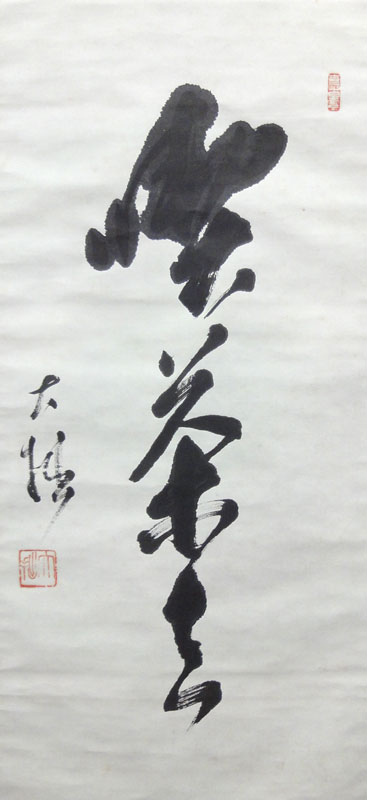 喫茶去
大悟